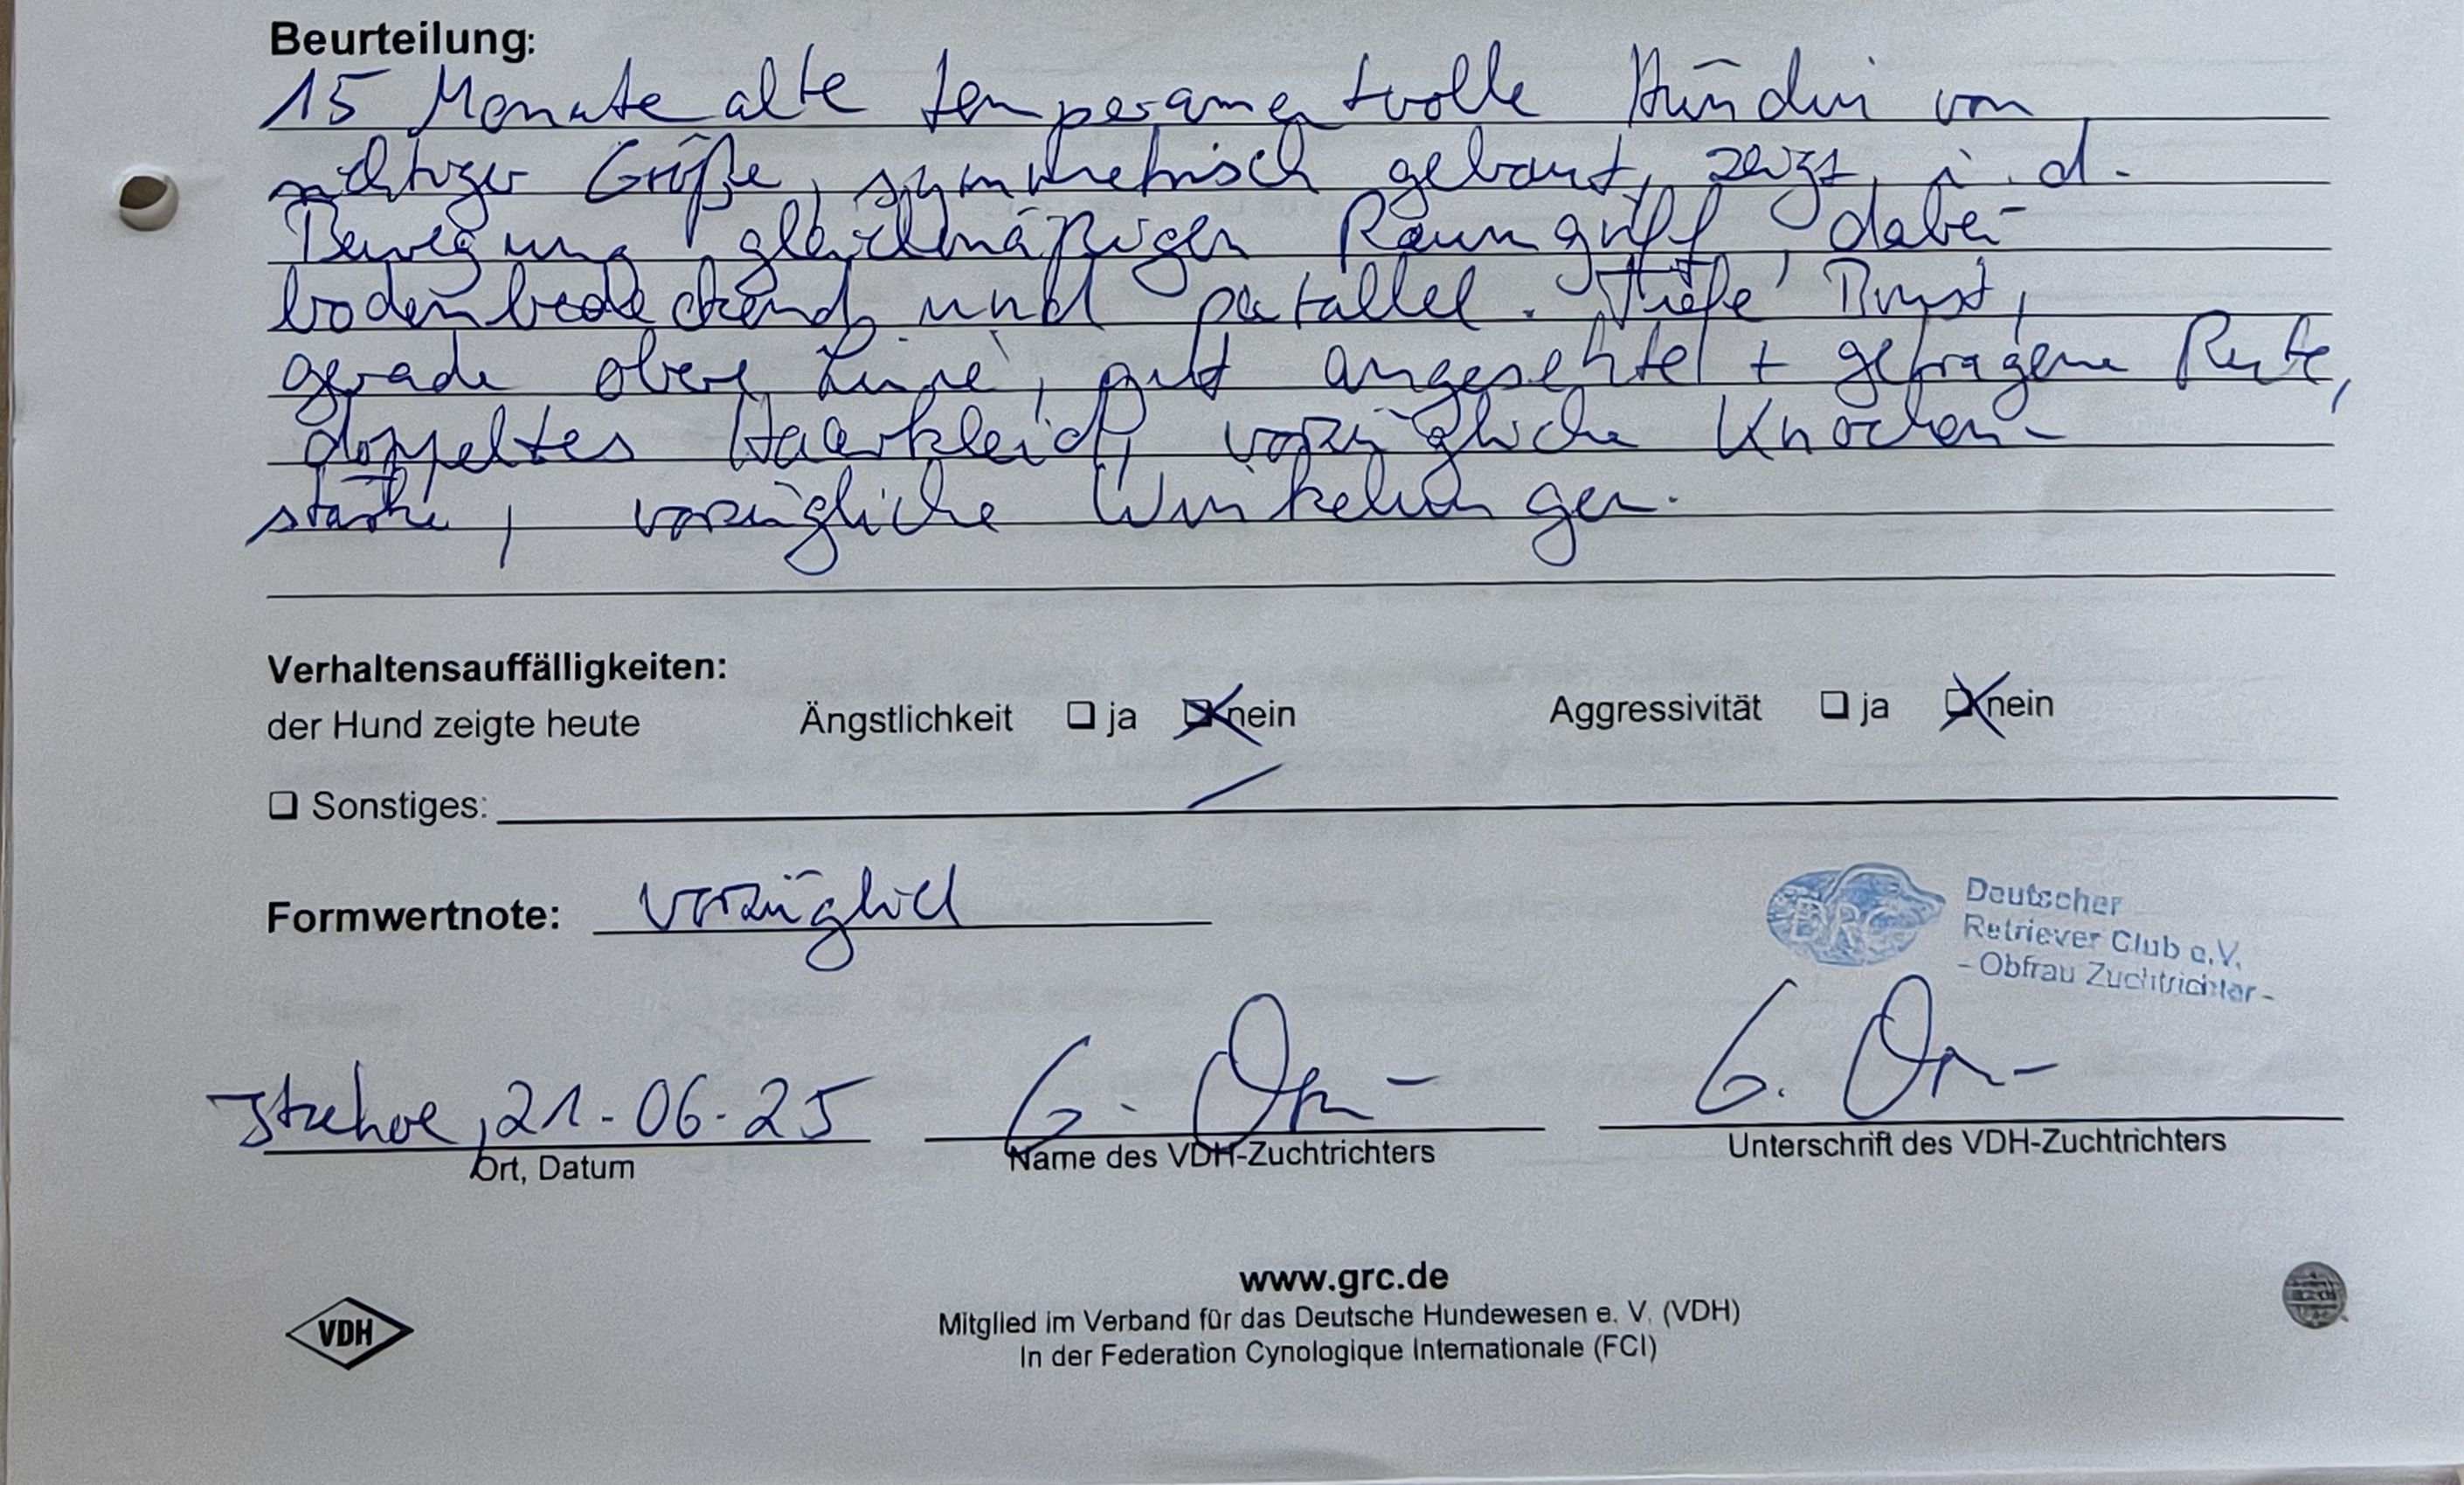 Beurteilung:
15 Monate alte temperamentvolle Hündin von
richtiger Größe, symmetrisch gebaut, zeigt i. d.
Bewegung gleichmäßigen Raumgriff, dabei
bodenbedeckend und parallel. Tiefe Brust,
gerade obere Linie, gut angesetzte + getragene Rute,
doppeltes Haarkleid, vorzügliche Knochen-
stärke, vorzügliche Winkelungen.
Verhaltensauffälligkeiten:
der Hund zeigte heute Ängstlichkeit ja nein Aggressivität ja nein
Sonstiges:
Formwertnote: vorzüglich
DRC
Deutscher
Retriever Club e.V.
- Obfrau Zuchtrichter -
Itzehoe, 21.06.25 G. G.
Ort, Datum Name des VDH-Zuchtrichters Unterschrift des VDH-Zuchtrichters
www.grc.de
VDH Mitglied im Verband für das Deutsche Hundewesen e. V. (VDH)
In der Federation Cynologique Internationale (FCI)